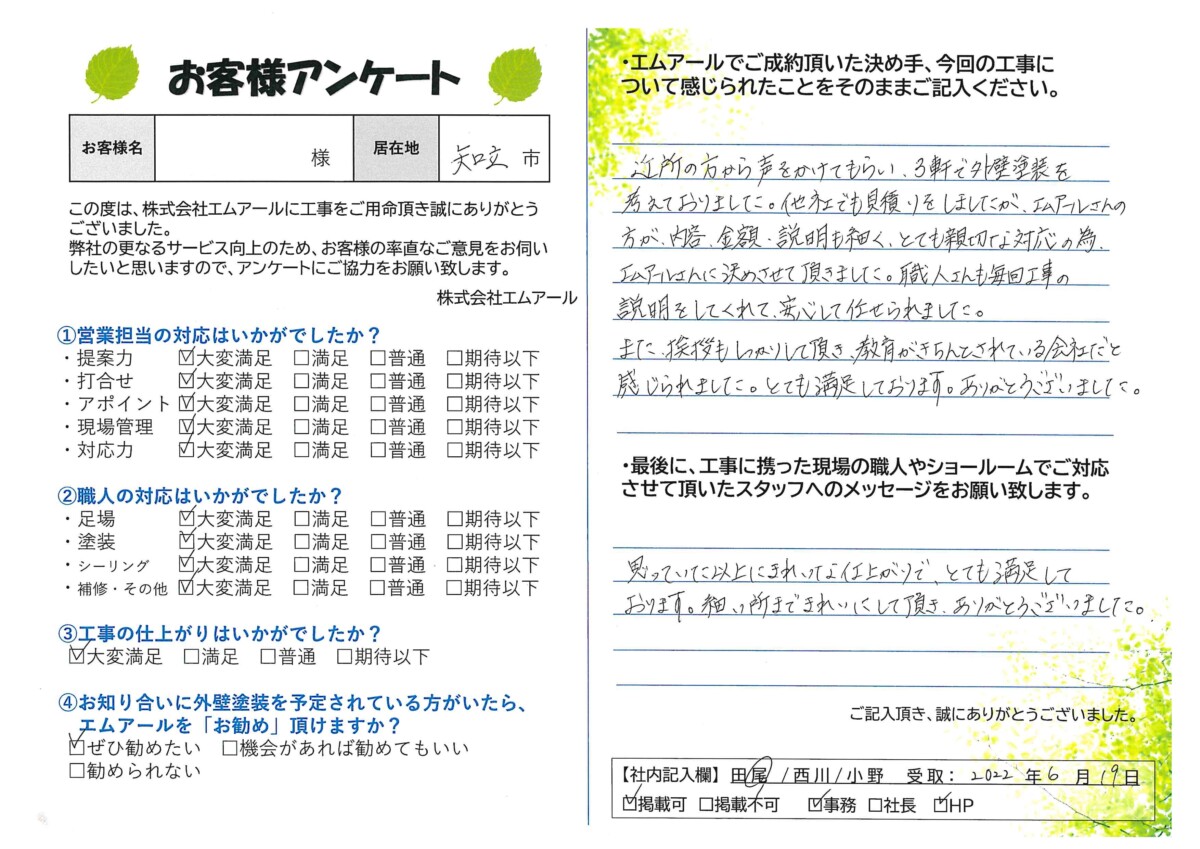 お客様アンケート
お客様名 様 居在地 知立 市
この度は、株式会社エムアールに工事をご用命頂き誠にありがとう
ございました。
弊社の更なるサービス向上のため、お客様の率直なご意見をお伺い
したいと思いますので、アンケートにご協力をお願い致します。
株式会社エムアール
①営業担当の対応はいかがでしたか？
・提案力 ☑大変満足 □満足 □普通 □期待以下
・打合せ ☑大変満足 □満足 □普通 □期待以下
・アポイント ☑大変満足 □満足 □普通 □期待以下
・現場管理 ☑大変満足 □満足 □普通 □期待以下
・対応力 ☑大変満足 □満足 □普通 □期待以下
②職人の対応はいかがでしたか？
・足場 ☑大変満足 □満足 □普通 □期待以下
・塗装 ☑大変満足 □満足 □普通 □期待以下
・シーリング ☑大変満足 □満足 □普通 □期待以下
・補修・その他 ☑大変満足 □満足 □普通 □期待以下
③工事の仕上がりはいかがでしたか？
☑大変満足 □満足 □普通 □期待以下
④お知り合いに外壁塗装を予定されている方がいたら、
エムアールを「お勧め」頂けますか？
☑ぜひ勧めたい □機会があれば勧めてもいい
□勧められない
・エムアールでご成約頂いた決め手、今回の工事に
ついて感じられたことをそのままご記入ください。
近所の方から声をかけてもらい、3軒で外壁塗装を
考えておりました。他社でも見積りをしましたが、エムアールさんの
方が、内容、金額、説明も細く、とても親切な対応の為、
エムアールさんに決めさせて頂きました。職人さんも毎回工事の
説明をしてくれて、安心して任せられました。
また、挨拶もしっかりして頂き、教育がきちんとされている会社だと
感じられました。とても満足しております。ありがとうございました。
・最後に、工事に携った現場の職人やショールームでご対応
させて頂いたスタッフへのメッセージをお願い致します。
思っていた以上にきれいな仕上がりで、とても満足して
おります。細い所まできれいにして頂き、ありがとうございました。
ご記入頂き、誠にありがとうございました。
【社内記入欄】田尾/西川/小野 受取：2022年6月19日
☑掲載可 □掲載不可 ☑事務 □社長 ☑HP